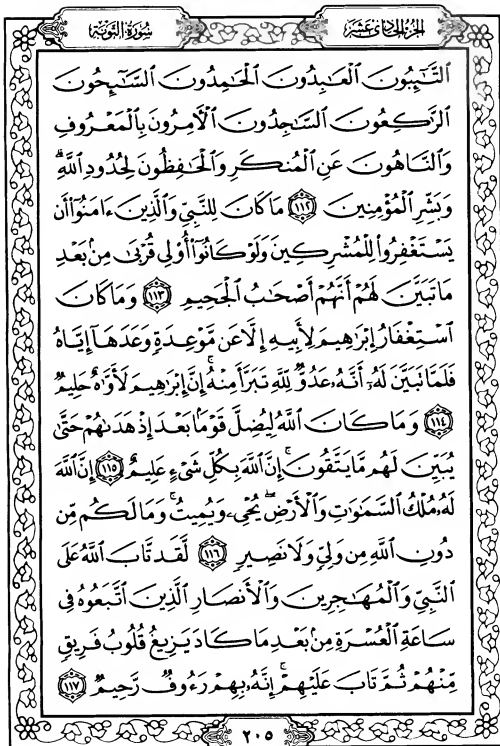 الجزء الحادي عشر سورة التوبة
التَّٰٓئِبُونَ ٱلْعَٰبِدُونَ ٱلْحَٰمِدُونَ ٱلسَّٰٓئِحُونَ
ٱلرَّٰكِعُونَ ٱلسَّٰجِدُونَ ٱلْءَامِرُونَ بِٱلْمَعْرُوفِ
وَٱلنَّاهُونَ عَنِ ٱلْمُنكَرِ وَٱلْحَٰفِظُونَ لِحُدُودِ ٱللَّهِۗ
وَبَشِّرِ ٱلْمُؤْمِنِينَ ١١٢ مَا كَانَ لِلنَّبِيِّ وَٱلَّذِينَ ءَامَنُوٓا۟ أَن
يَسْتَغْفِرُوا۟ لِلْمُشْرِكِينَ وَلَوْ كَانُوٓا۟ أُو۟لِى قُرْبَىٰ مِنۢ بَعْدِ
مَا تَبَيَّنَ لَهُمْ أَنَّهُمْ أَصْحَٰبُ ٱلْجَحِيمِ ١١٣ وَمَا كَانَ
ٱسْتِغْفَارُ إِبْرَٰهِيمَ لِأَبِيهِ إِلَّا عَن مَّوْعِدَةٍ وَعَدَهَآ إِيَّاهُ
فَلَمَّا تَبَيَّنَ لَهُۥٓ أَنَّهُۥ عَدُوٌّ لِّلَّهِ تَبَرَّأَ مِنْهُۚ إِنَّ إِبْرَٰهِيمَ لَأَوَّٰهٌ حَلِيمٌ
١١٤ وَمَا كَانَ ٱللَّهُ لِيُضِلَّ قَوْمًۢا بَعْدَ إِذْ هَدَىٰهُمْ حَتَّىٰ
يُبَيِّنَ لَهُم مَّا يَتَّقُونَۚ إِنَّ ٱللَّهَ بِكُلِّ شَىْءٍ عَلِيمٌ ١١٥ إِنَّ ٱللَّهَ
لَهُۥ مُلْكُ ٱلسَّمَٰوَٰتِ وَٱلْأَرْضِۖ يُحْىِۦ وَيُمِيتُۚ وَمَا لَكُم مِّن
دُونِ ٱللَّهِ مِن وَلِىٍّ وَلَا نَصِيرٍ ١١٦ لَّقَد تَّابَ ٱللَّهُ عَلَى
ٱلنَّبِىِّ وَٱلْمُهَٰجِرِينَ وَٱلْأَنصَارِ ٱلَّذِينَ ٱتَّبَعُوهُ فِى
سَاعَةِ ٱلْعُسْرَةِ مِنۢ بَعْدِ مَا كَادَ يَزِيغُ قُلُوبُ فَرِيقٍ
مِّنْهُمْ ثُمَّ تَابَ عَلَيْهِمْۚ إِنَّهُۥ بِهِمْ رَءُوفٌ رَّحِيمٌ ١١٧
٢٠٥